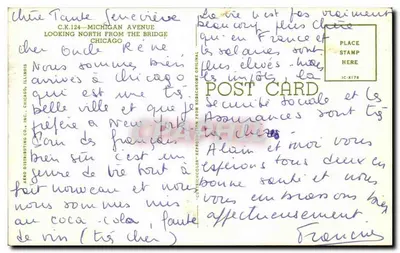 Chère Tante Geneviève
C.K.124—MICHIGAN AVENUE
LOOKING NORTH FROM THE BRIDGE
CHICAGO
cher Oncle René
Nous sommes bien
arrivés à Chicago
qui est une très
belle ville et que je
préfère à New York
Loin des français
bien sûr c'est un
genre de vie tout à
fait nouveau et nous
nous sommes mis
au coca-cola, faute
de vin (très cher)
La vie n'est pas vraiment
beaucoup plus chère
qu'en France et
les salaires sont
plus élevés - mais
les impôts, la
PLACE
STAMP
HERE
POST CARD
Sécurité sociale et les
assurances sont très
chères
Alain et moi vous
espérons tous deux en
bonne santé et nous
vous embrassons très
affectueusement
Francine